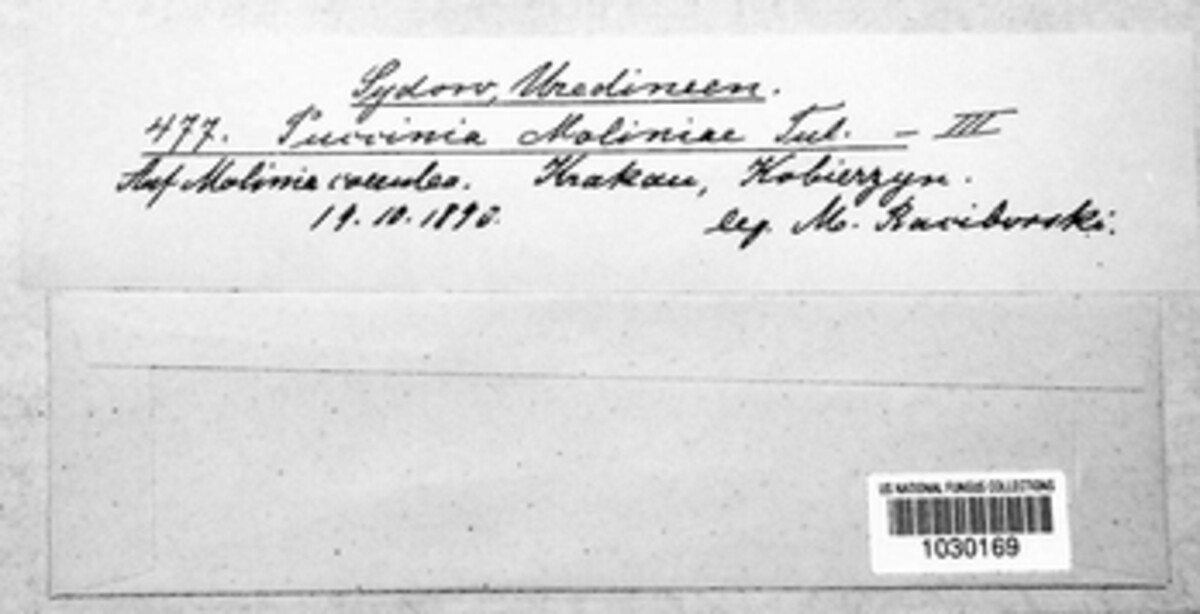 Sydow, Uredineen.
477. Puccinia Moliniae Tul. - III
Auf Molinia coerulea. Krakau, Kobierzyn.
19.10.1890. leg. M. Raciborski.
US NATIONAL FUNGUS COLLECTIONS
1030169